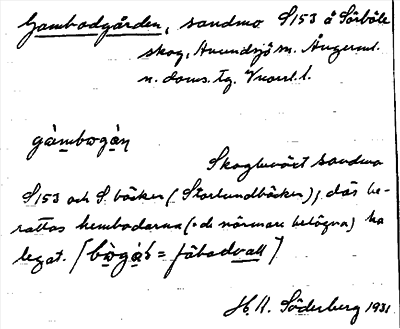 Gambodgården, sandmo S153 å Sörböle
skog, Anundsjö sn. Ångerml.
n. doms. tg. Vnorrl. l.
gàmbogàṇ
Skogbevöxt sandmo
S153 och S. bäcken (Storlundbäcken), där be-
rättas hembodarna (o: de närmare belägna) ha
legat. [bògáṣ = fäbodvall]
H. R. Söderberg 1931